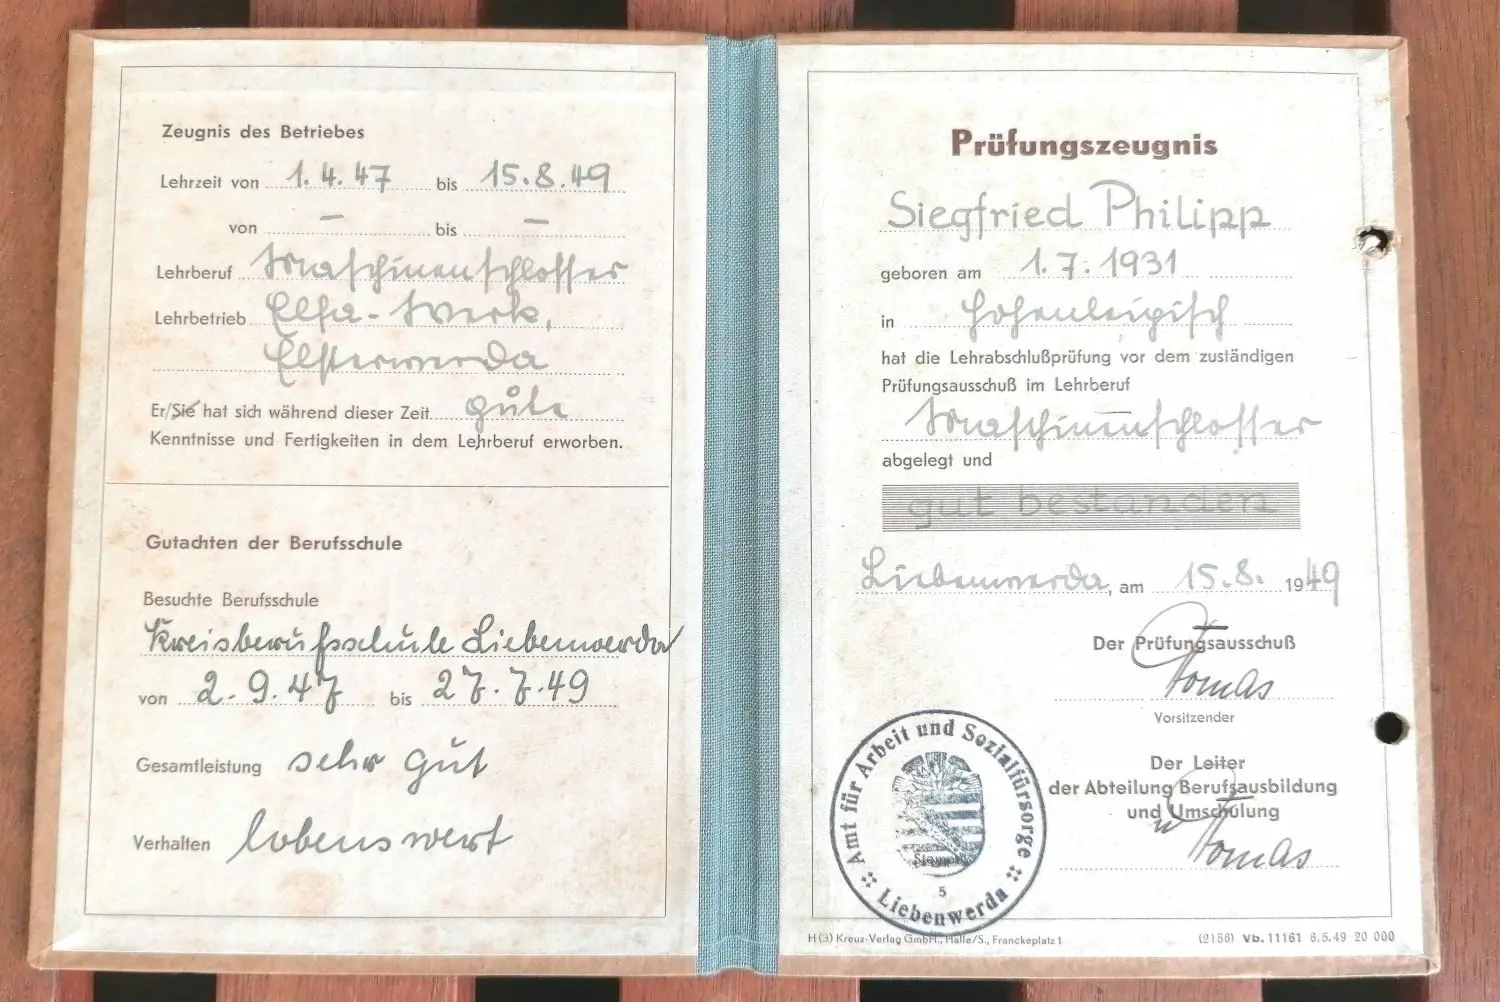 Zeugnis des Betriebes
Lehrzeit von 1.4.47 bis 15.8.49
von – bis –
Lehrberuf Maschinenschlosser
Lehrbetrieb Elfa-Werk,
Elsterwerda
Er/Sie hat sich während dieser Zeit gute
Kenntnisse und Fertigkeiten in dem Lehrberuf erworben.
Gutachten der Berufsschule
Besuchte Berufsschule
Kreisberufsschule Liebenwerda
von 2.9.47 bis 27.7.49
Gesamtleistung sehr gut
Verhalten lobenswert
Prüfungszeugnis
Siegfried Philipp
geboren am 1.7.1931
in Hohenleipisch
hat die Lehrabschlußprüfung vor dem zuständigen
Prüfungsausschuß im Lehrberuf
Maschinenschlosser
abgelegt und
gut bestanden
Liebenwerda, am 15.8. 1949
Der Prüfungsausschuß
Thomas
Vorsitzender
Der Leiter
der Abteilung Berufsausbildung
und Umschulung
Thomas
Amt für Arbeit und Sozialfürsorge
5
Liebenwerda
H (3) Kreuz-Verlag GmbH., Halle/S., Franckeplatz 1
(2156) Vb. 11161 6.5.49 20 000